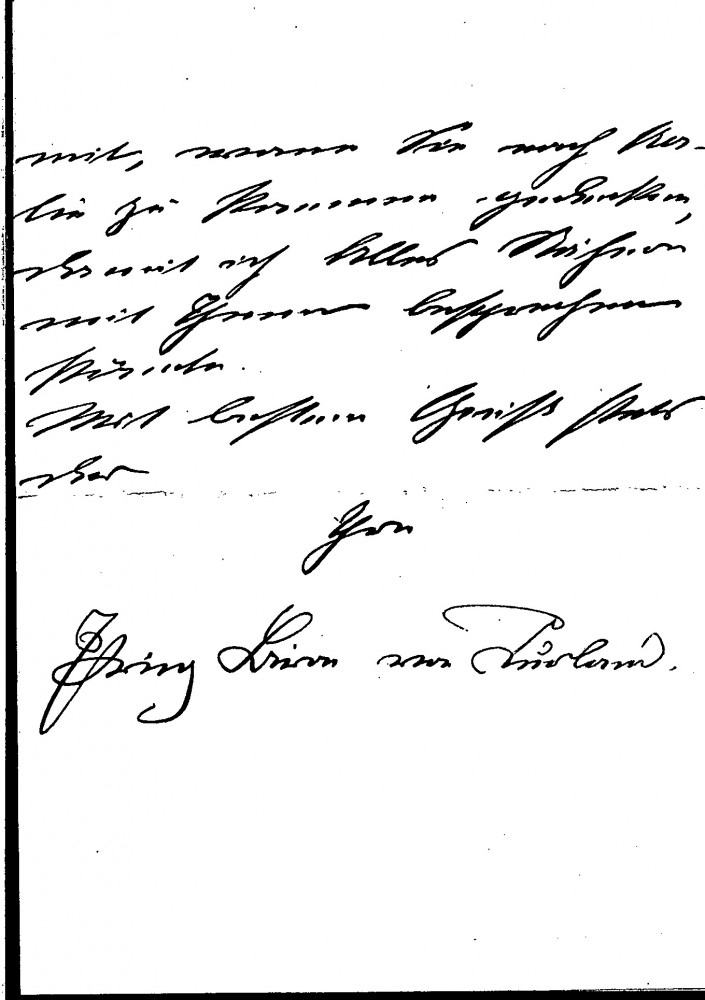 mit, wann Sie nach Ber-
lin zu kommen gedenken,
damit ich Alles Nähere
mit Ihnen besprechen
könnte.
Mit bestem Gruß stets
der
Ihre
Prinz Biron von Curland.